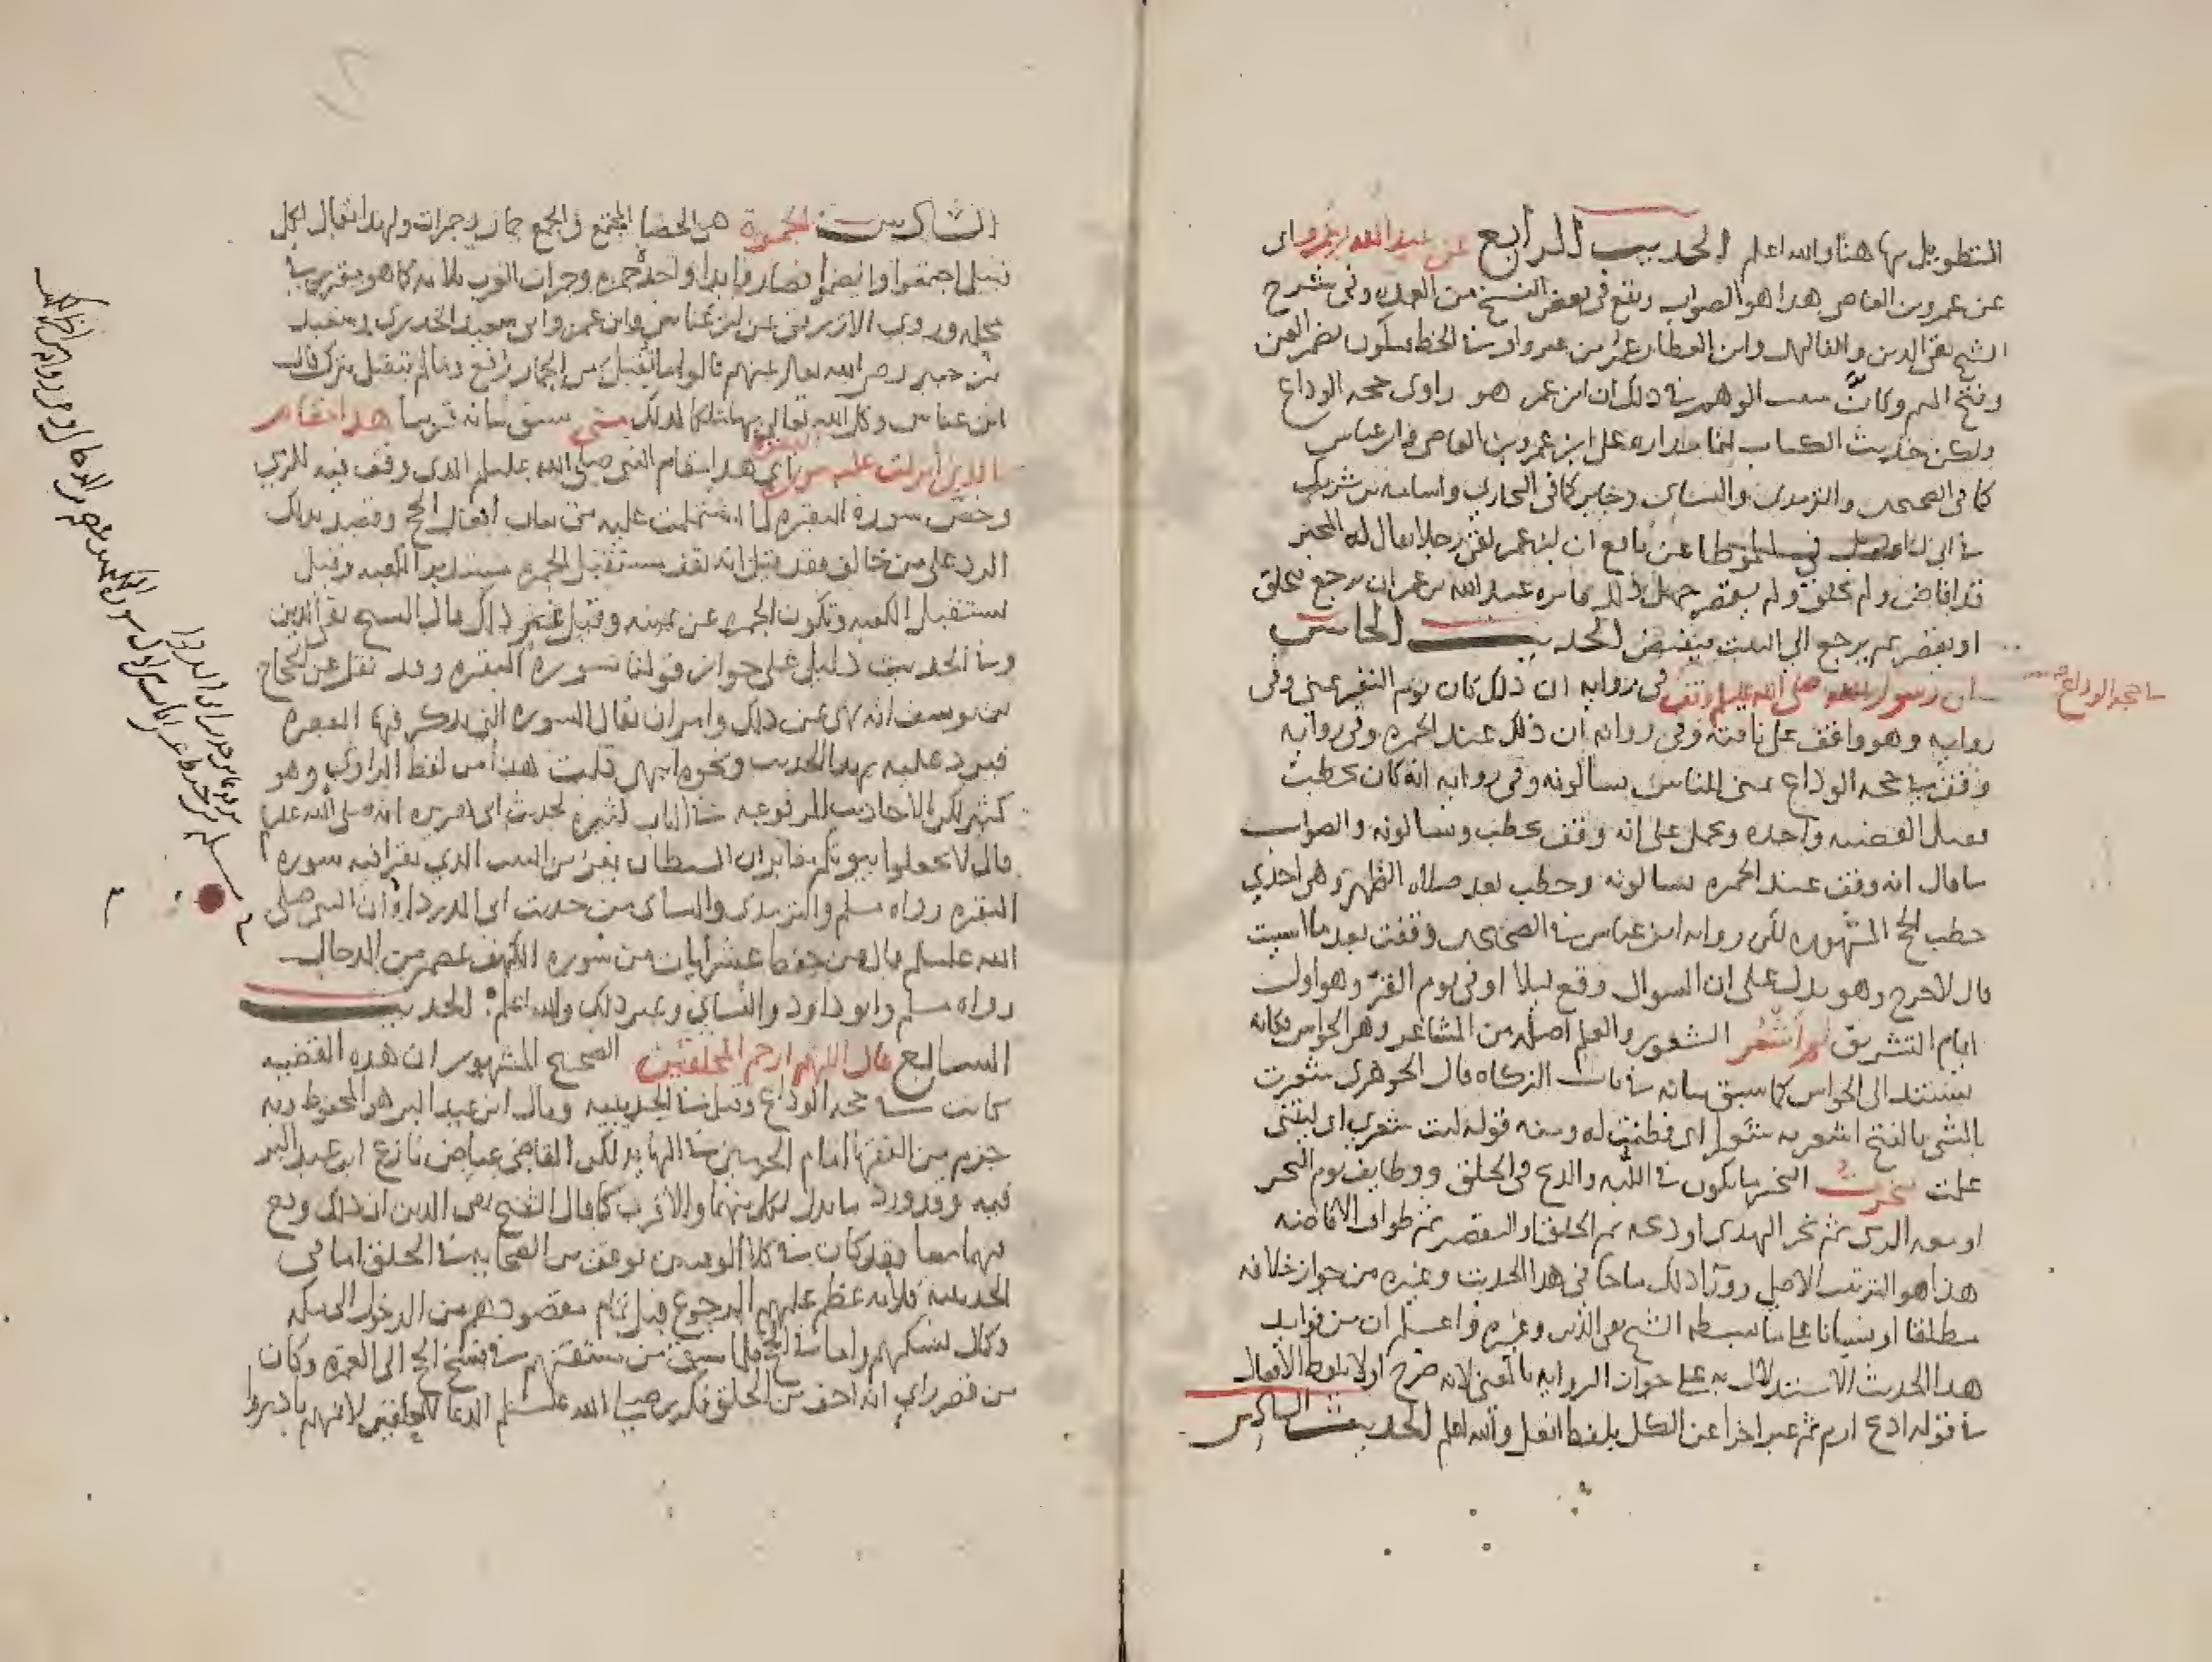 التطويل بها هنا والله اعلم الحديث الرابع عن عبد الله بن عمرو اى
عن عمرو بن العاص هدا هو الصواب ويقع فى بعض النسخ من العمدة وفى شرح
الشيخ تقى الدين والفاكهى وابن العطار عن بن عمر واو ساقطه فيكون بضم العين
وفتح الميم وكانّ سبب الوهم فى ذلك ان ابن عمر هو راوى حجه الوداع
ولكن حديث الكتاب انما مداره على ابن عمرو بن العاص وابن عباس
كما فى الصحيحين والترمدى والنساى وجابر كما فى البخارى واسامه بن شريك
فى ابى داود فى الموطا عن نافع ان ابن عمر لقى رجلا يقال له المجبر
قد افاض ولم يحلق ولم يقصر جهل ذلك فامره عبد الله بن عمر ان يرجع فيحلق
او يقصر ثم يرجع الى البيت فيفيض الحديث الخامس
ان رسول الله صلى الله عليه وسلم وقف فى روايه ان ذلك كان يوم النحر بمنى وفى
فى حجه الوداع
روايه وهو واقف على ناقته وفى روايه ان ذلك عند الجمره وفى روايه
وقف فى حجه الوداع بمنى للناس يسالونه وفى روايه انه كان يخطب
فقيل القضيه واحده ويحمل على انه وقف يخطب ويسالونه والصواب
ما قال انه وقف عند الجمره يسالونه وخطب بعد صلاه الظهر وهى احدى
خطب الحج المشهوره لكن روايه ابن عباس فى الصحيحين وقفت بعد ما امسيت
قال لا حرج وهو يدل على ان السوال وقع ليلا او فى يوم القرّ وهو اول
ايام التشريق لم أشعُر الشعور والعلم اصله من المشاعر وهى الحواس وكانه
يستند الى الحواس كما سبق بيانه فى باب الزكاه قال الجوهرى شعرت
بالشى بالفتح اشعر به شعورا اى فطنت له ومنه قوله ليت شعرى اى ليتنى
علمت نحرت النحر ما يكون فى اللبّه والذبح فى الحلق ووظايف يوم النحر
اربعه الرمى ثم نحر الهدى او ذبحه ثم الحلق او التقصير ثم طواف الافاضه
هذا هو الترتيب الاصل دون ذلك ما جا فى هذا الحديث وغيره من جواز خلافه
مطلقا او نسيانا على ما بسطه الشيخ تقى الدين وغيره واعلم ان من فوايد
هدا الحديث الاستدلال به على جواز الروايه بالمعنى لانه صرح اولا بلفظ الافعال
فى قوله ادبح ارم ثم عبر اخرا عن الكل بلفظ افعل والله اعلم الحديث السادس
السادس الجمرة هى الحصا المجتمع والجمع جمار وجمرات ولهذا يقال لكل
قبيل اجتمعوا وانضموا فصاروا يدا واحدة جمره وجمرات العرب ثلاثه كما هو مقرر فى
محله وروى الازرقى عن ابن عباس وابن عمر وابى سعيد الخدرى وسعيد
بن جبير رضى الله تعالى عنهم قالوا ما تقبل من الجمار رفع وما لم يتقبل ترك قال
ابن عباس وكل الله تعالى بها ملكا لذلك منى سبق بيانه قريبا هذا مقام
الذى أنزلت عليه سورة البقرة اى هدا مقام النبى صلى الله عليه وسلم الدى وقف فيه للرمى
وخص سورة البقرة لما اشتملت عليه من بيان افعال الحج وقصد بدلك
الرد على من خالف فقد قيل انه يقف مستقبل الجمره مستدبر الكعبه وقيل
يستقبل الكعبه وتكون الجمره عن يمينه وقيل غير ذلك قال الشيخ تقى الدين
وفى الحديث دليل على جواز قولنا سورة البقره وقد نقل عن الحجاج
بن يوسف انه نهى عن ذلك وامر ان يقال السوره التى يدكر فيها البقره
فيرد عليه بهدا الحديث ونحوه انتهى قلت هدا من لفظ الراوى وهو
كثير لكن الاحاديث المرفوعه فى الباب كثيرة كحديث ابى هريره انه صلى الله عليه وسلم
قال لا تجعلوا بيوتكم مقابر ان الشيطان يفر من البيت الذى يقرا فيه سوره
البقره رواه مسلم والترمدى والنساى من حديث ابى الدرداء ان النبى صلى
الله عليه وسلم قال من حفظ عشر ايات من سوره الكهف عصم من الدجال
رواه مسلم وابو داود والنساى وغير ذلك والله اعلم الحديث
السابع قال اللهم ارحم المحلقين الصحيح المشهور ان هذه القضيه
كانت فى حجه الوداع وقيل فى الحديبيه وقال ابن عبد البر هو المحفوظ وبه
جزم من الفقها امام الحرمين فى النهايه لكن القاضى عياض نازع ابن عبد البر
فيه وقد ورد ما يدل لكل منهما والاقرب كما قال الشيخ تقى الدين ان ذلك وقع
فيهما معا وقد كان فى كلا الوقتين توقف من الصحابه فى الحلق اما فى
الحديبيه فلانه عظم عليهم الرجوع قبل تمام مقصودهم من الدخول الى مكه
وكمال نسكهم واما فى الحج فلما سبق من مشقتهم فى فسخ الحج الى العمره وكان
من قصر راى انه اخف من الحلق فكرر صلى الله عليه وسلم الدعا للمحلقين لانهم بادروا